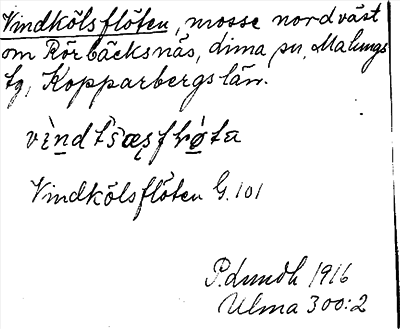 Vindkölsflöten, mosse nordväst
om Rörbäcksnäs, Lima sn, Malungs
tg, Kopparbergs län.
Vindkölsflöten G.101
P. Lundh 1916
Ulma 300:2